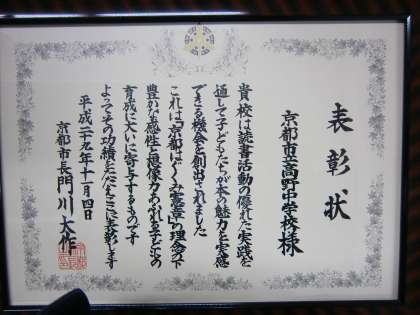 表彰状
京都市立高野中学校様
貴校は読書活動の優れた実践を
通して子どもたちが本の魅力を実感
できる機会を創出されました
これは「京都はぐくみ憲章」の理念の下
豊かな感性と想像力あふれる子どもの
育成に大いに寄与するものです
よってその功績をたたえここに表彰します
平成二十九年十一月四日
京都市長 門川大作